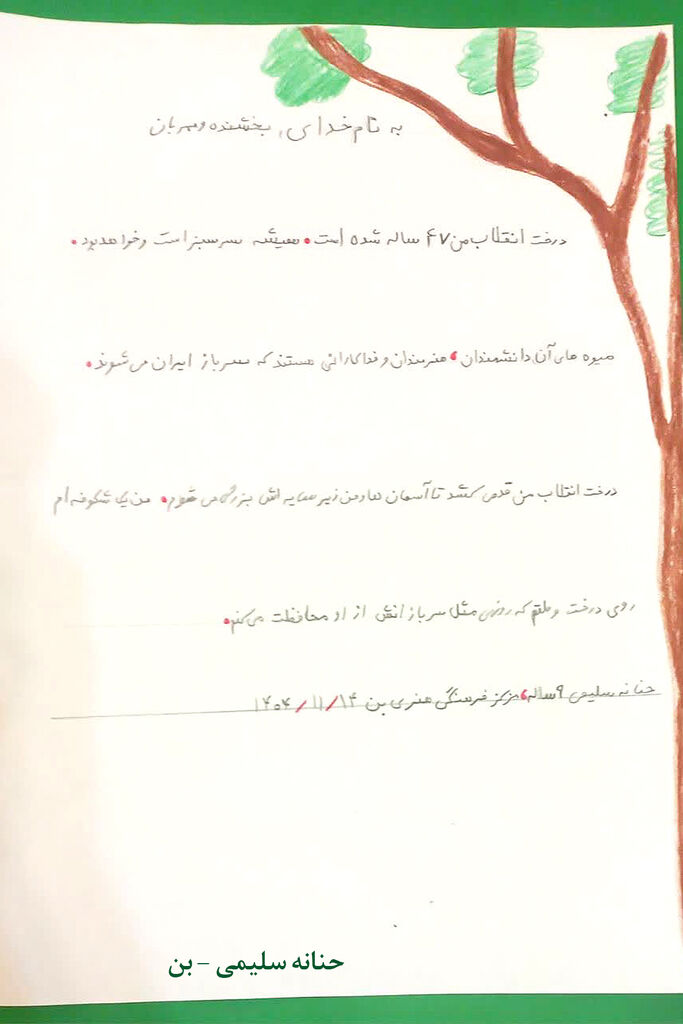 به نام خدای بخشنده و مهربان
درخت انقلاب من ۴۷ ساله شده است. همیشه سرسبز است و خواهد بود.
میوه های آن دانشمندان، هنرمندان و فداکارانی هستند که سرباز ایران می شوند.
درخت انقلاب من قد می کشد تا آسمان ها و من زیر سایه اش بزرگ می شوم. من یک شکوفه ام
روی درخت وطنم که روزی مثل سربازانش از او محافظت می کنم.
حنانه سلیمی ۹ ساله، مرکز فرهنگی هنری بن ۱۴۰۴/۱۱/۱۴
حنانه سلیمی – بن